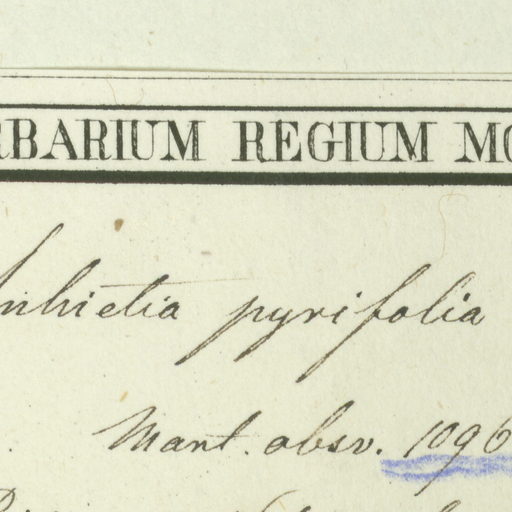 RBARIUM REGIUM MO
nhietia pyrifolia
Mant. obsv. 1096